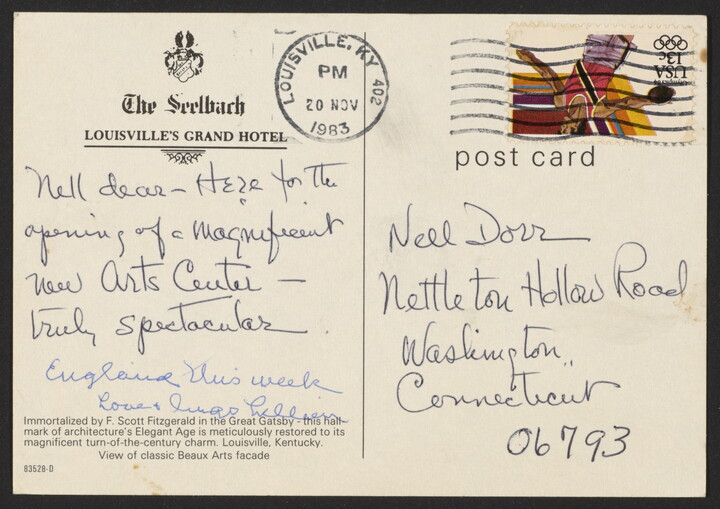 The Seelbach
LOUISVILLE'S GRAND HOTEL
LOUISVILLE, KY 402
PM
20 NOV
1983
USA
13c
post card
Nell dear - Here for the
opening of a magnificent
new Arts Center -
truly spectacular.
England this week
Love & hugs
Immortalized by F. Scott Fitzgerald in the Great Gatsby - this hall
mark of architecture's Elegant Age is meticulously restored to its
magnificent turn-of-the-century charm. Louisville, Kentucky.
View of classic Beaux Arts facade
83528-D
Nell Dorr
Nettleton Hollow Road
Washington,
Connecticut
06793